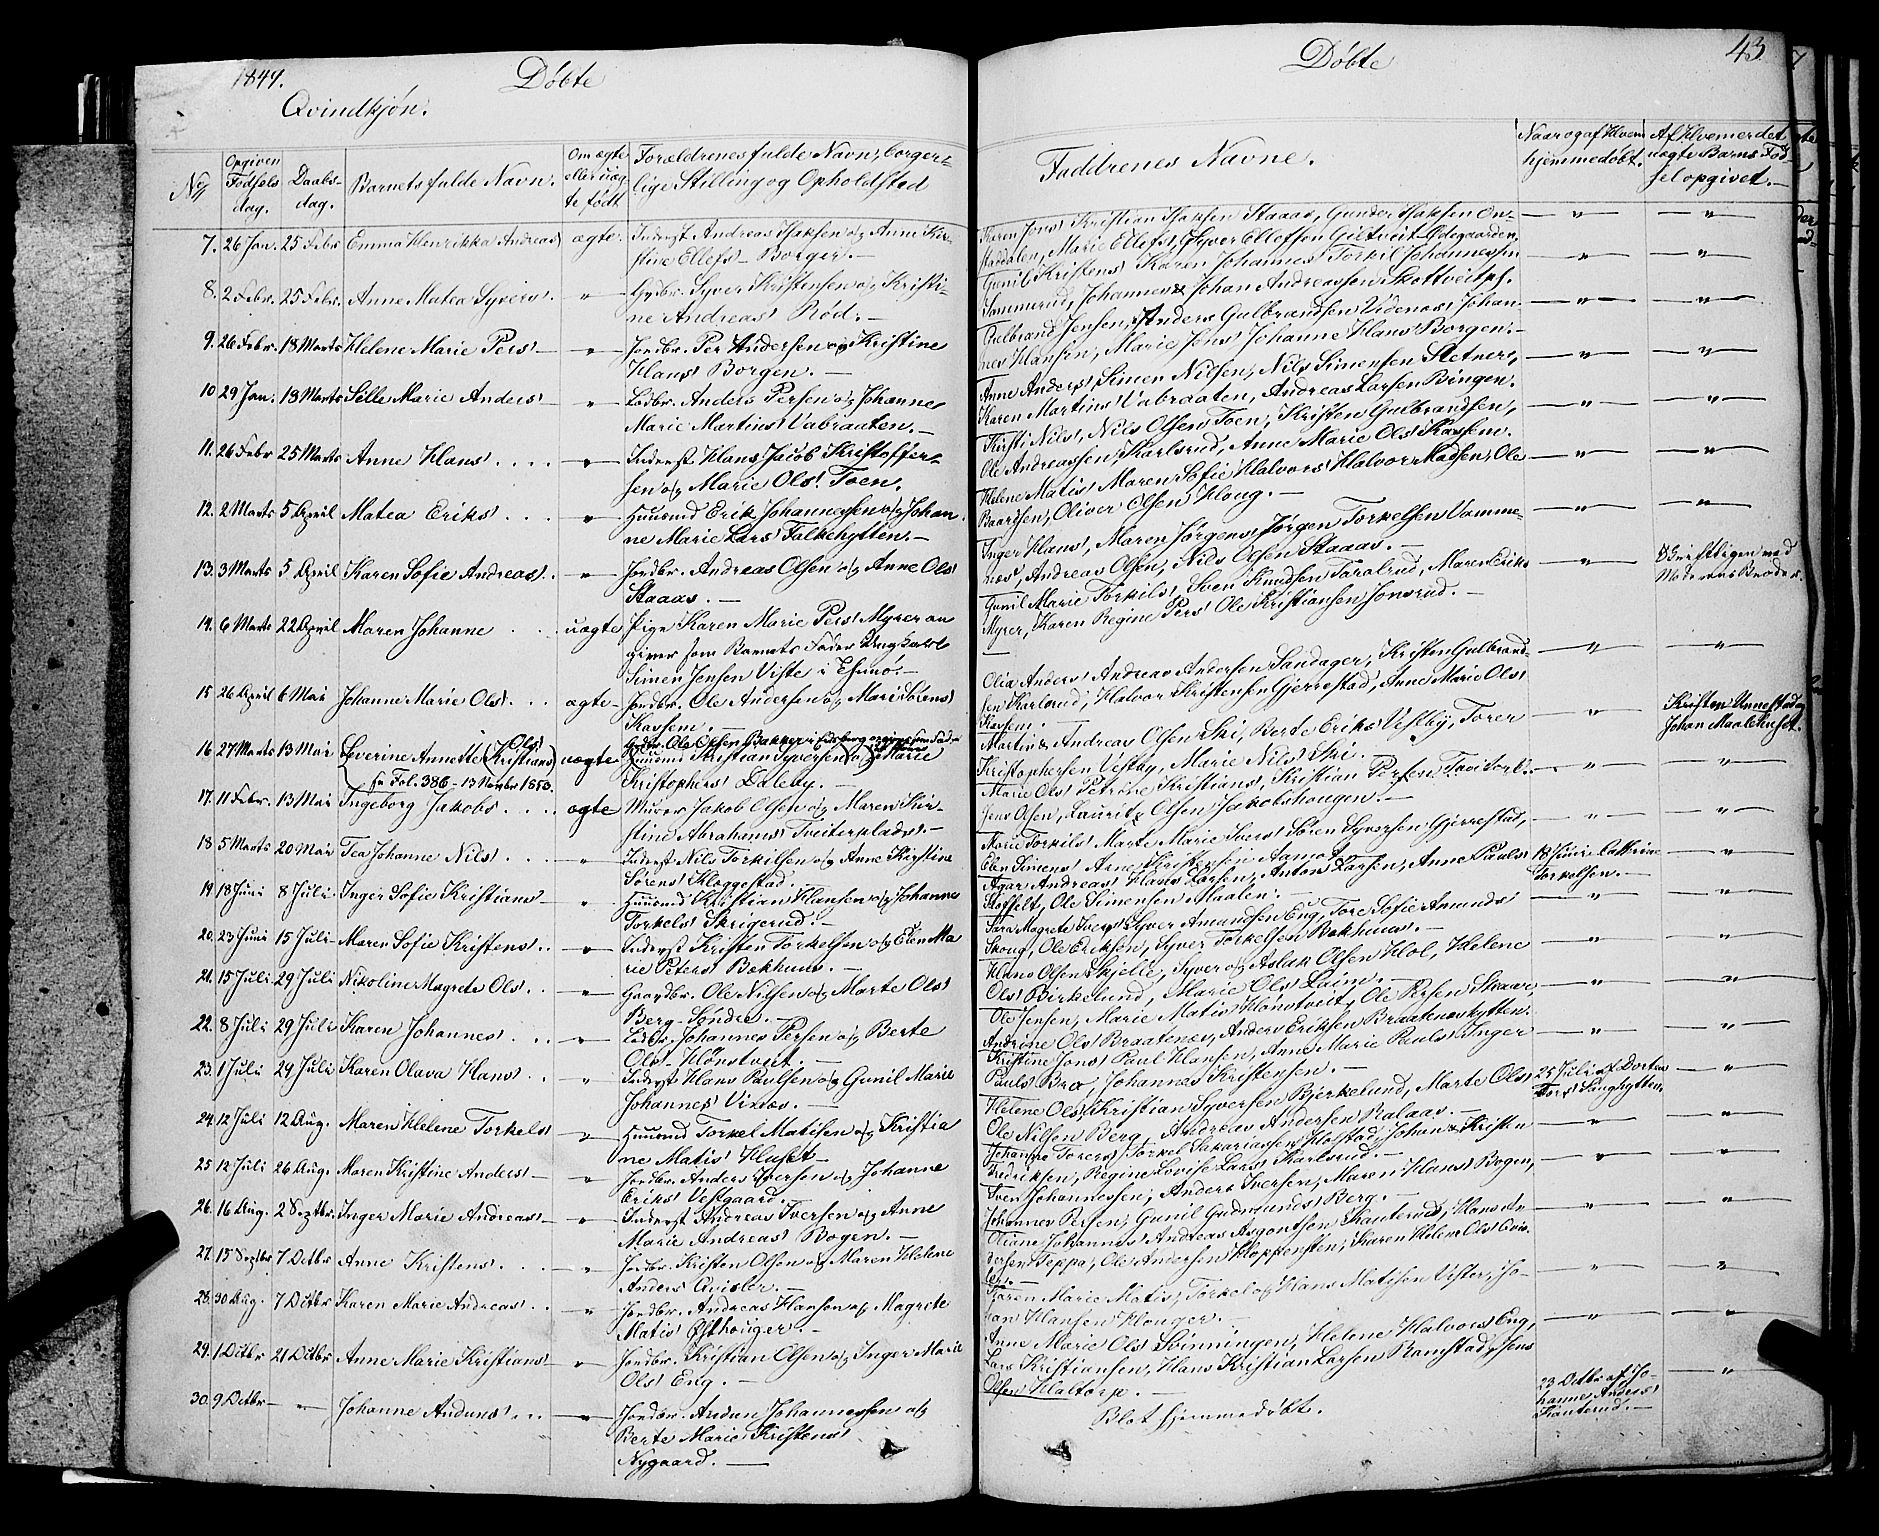 1849. Døbte
Qvindkjøn.
No Opgiven Fødsels dag. Daabs-dag. Barnets fulde Navn. Om ægte eller uæg te født Forældrenes fulde Navn, borger-
lige Stilling og Opholdsted
7. 26 Jan. 25 Febr Emma Henrikka Andreas ægte. Inderst Andreas Isaksen og Anne Kir-
stine Ellefs Borger. —
8. 2 Febr. 25 Febr. Anne Matea Syvers. " Gbr. Syver Kristensen og Kristi-
ne Andreas Rød. —
9. 26 Febr. 18 Marts Helene Marie Pers — " Jordbr. Per Andersen og Kristine
Hans Borgen. —
10 29 Jan. 18 Marts Sille Marie Anders — " Ladbr. Anders Persen og Johanne
Marie Martins Vabraaten. —
11. 26 Febr 25 Marts Anne Hans. . . . " Inderst Hans Jacob Kristoffer-
sen og Marie Ols. Toen.
12. 2 Marts 5 April Matea Eriks. . . . " Huusmd Erik Johannessen og Johan
ne Marie Lars Falkehytten. —
13. 3 Marts 5 April Karen Sofie Andreas. . " Jordbr. Andreas Olsen og Anne Ols
Staaas. —
14. 6 Marts 22 April Maren Johanne . . . . uægte Pige Karen Marie Pers Myrer an
giver som Barnets Fader Ungkarl
Simen Jensen Viste i Esmø. —
15 26 April 6 Mai Johanne Marie Ols. . . ægte — Jordbr. Ole Andersen og Mari Sørens
Kassem. —
16 27 Marts 13 Mai Everine Annette (Kristians) Ols uægte Gbr. Ole Olsen Bakken i Eidsberg
(Huusmd Kristian Syversen og) Marie
se Fol. 386 - 13 Novbr 1853. Kristophers Daleby. —
17. 11 Febr. 13 Mai Ingeborg Jakobs. . . . ægte Muurer Jakob Olsen og Maren Kir-
stine Abrahams Tveiterpladsn. —
18 5 Marts 20 Mai Tea Johanne Nils. . . . " Inderst Nils Torkilsen og Anne Kirstine
Sørens Kloggestad. —
19 18 Juni 8 Juli Inger Sofie Kristians — " Huusmd Kristian Hansen og Johanne
Torkels Skrigerud. —
20. 23 Juni 15 Juli Maren Sofie Kristens. . " Inderst Kristen Torkelsen og Elen Ma
rie Peters Bakhuus. —
21. 15 Juli 29 Juli Nikoline Magrete Ols. . " Gaardbr. Ole Nilsen og Marte Ols
Berg Søndre. —
22. 8 Juli 29 Juli Karen Johannes. . . . " Ladbr. Johannes Persen og Berte
Ols Hønstveit. —
23. 1 Juli 29 Juli Karen Olava Hans. . . " Inderst Hans Paulsen og Gunil Marie
Johannes Vixas. —
24 12 Juli 12 Aug. Maren Helene Torkels " Huusmd Torkel Matisen og Kristia
ne Matis Huset —
25 12 Juli 26 Aug. Maren Kristine Anders — " Jordbr. Anders Iversen og Johanne
Eriks Vestgaard. —
26. 16 Aug. 2 Septbr. Inger Marie Andreas — " Inderst Andreas Iversen og Anne
Marie Andreas Bogen. —
27. 15 Septbr 7 Octbr. Anne Kristens. . . . " Jordbr. Kristen Olsen og Maren Helene
Anders Qvisler. —
28. 30 Aug. 7 Octbr Karen Marie Andreas. . " Jordbr. Andreas Hansen og Magrete
Matis Østhouger. —
29. 1 Octbr 21 Octbr Anne Marie Kristians — " Jordbr. Kristian Olsen og Inger Marie
Ols Eng. —
30. 9 Octbr — " — Johanne Anduns. . . . " Jordbr. Andun Johannessen og
Berte Marie Kristens
Nygaard. —
Døbte 43
Faddrenes Navne. Naar og af Hvem hjemmedøbt. Af Hvem er det uægte Barns Fød-
sel opgivet. —
Karen Jons Kristian Isaksen Staaas, Gunder Isaksen On-
staddalen, Marie Ellefs, Syver Ellefsen Gietveit Ødegaarden.
Gunil Kristens Karen Johannes Torkil Johannessen
Sommerud, Johannes Johan Andreassen Skottveitpl.
Gulbrand Jensen, Anders Gulbrandsen Videnas, Johan-
nes Hansen, Marie Jons Johanne Hans Borgen. —
Anne Anders, Simen Nilsen, Nils Simensen Sletner,
Karen Martins Vabraaten, Andreas Larsen Bingen.
Kirsti Nils, Nils Olsen Toen, Kristen Gulbrandsen,
Ole Andreassen, Karlsrud, Anne Marie Ols Kassem.
Helene Matis Maren Sofie Halvors Halvor Madsen, Ole
Baardsen, Oliver Olsen Houg. —
Inger Hans, Maren Jørgens Jørgen Torkelsen Vamme-
nes, Andreas Olsen, Nils Olsen Staaas. —
Gunil Marie Torkils, Sven Knudsen Taralrud, Maren Eriks
Myrer, Karen Regine Pers Ole Kristiansen Jonsrud. —
Skriftligen ved
Moderens Broder.
Olia Anders Andreas Andersen Sandager, Kristen Gulbrand-
sen Karlsrud, Halvor Kristensen Gjerrestad, Anne Marie Ols
Kassem. —
Martin Andreas Olsen Ski, Berte Eriks Vestby, Torer
Kristophersen Vestby, Marie Nils Ski. —
Kristen Unnestad og
Johan Maalehuset.
Marie Ols Petrine Kristians, Kristian Persen,
Jens Olsen, Laurits Olsen Jakobshougen. —
Marie Torkils Marte Marie Ivers Søren Syversen Gjerrestad,
Elen Simens Arne Aamot.
Agar Andreas Hans Larsen, Anton Larsen, Anne Pauls 18 Juni Cathrine
Torkelsen. —
Ole Simensen Maalen. —
Sara Magrete Ivers Syver Amundsen Eng, Tore Sofie Amunds
Skoug, Ole Eriksen, Syver Torkelsen Bakhuus. —
Hans Olsen Skjelle, Syver og Aslak Olsen Hol, Helene
Ols Birkelund, Marie Ols Laim. —
Ole Jensen, Marie Matis Hønstveit, Ole Persen Skaar,
Andrine Ols Braatenes, Anders Eriksen Braatenshytten.
Kristine Jons Paul Hansen, Anne Marie Pauls Inger
Pauls Bro, Johannes Kristensen. — 25 Juli af Dortea
Tors Hunghytten
Helene Ols Kristian Syversen Bjerkelund, Marte Ols
Ole Nilsen Berg, Andreas Andersen Ralaas. —
Johanne Torers Torkel Sakariassen Holstad, Johan Kristen
Fredriksen, Regine Lovise Lars Karlsrud. —
Sven Johannessen, Anders Iversen, Maren Hans Bogen,
Johannes Persen, Gunil Gudmunds Berg. —
Oliane Johannes Andreas Asgautsen Skauterud, Hans An
dersen Teppa, Ole Andersen Kloppensten, Karen Helene Ols Qvis-
ler. —
Karen Marie Matis, Torkel og Hans Matisen Vister, Jo-
han Hansen Houger. —
Anne Marie Ols Svinningen, Helene Halvors Eng,
Lars Kristiansen, Hans Kristian Larsen Ramstad, Jens
Olsen Haltorp. —
Blot hjemmedøbt. 23 Octbr af Jo-
hannes Anders
Skauterud. —